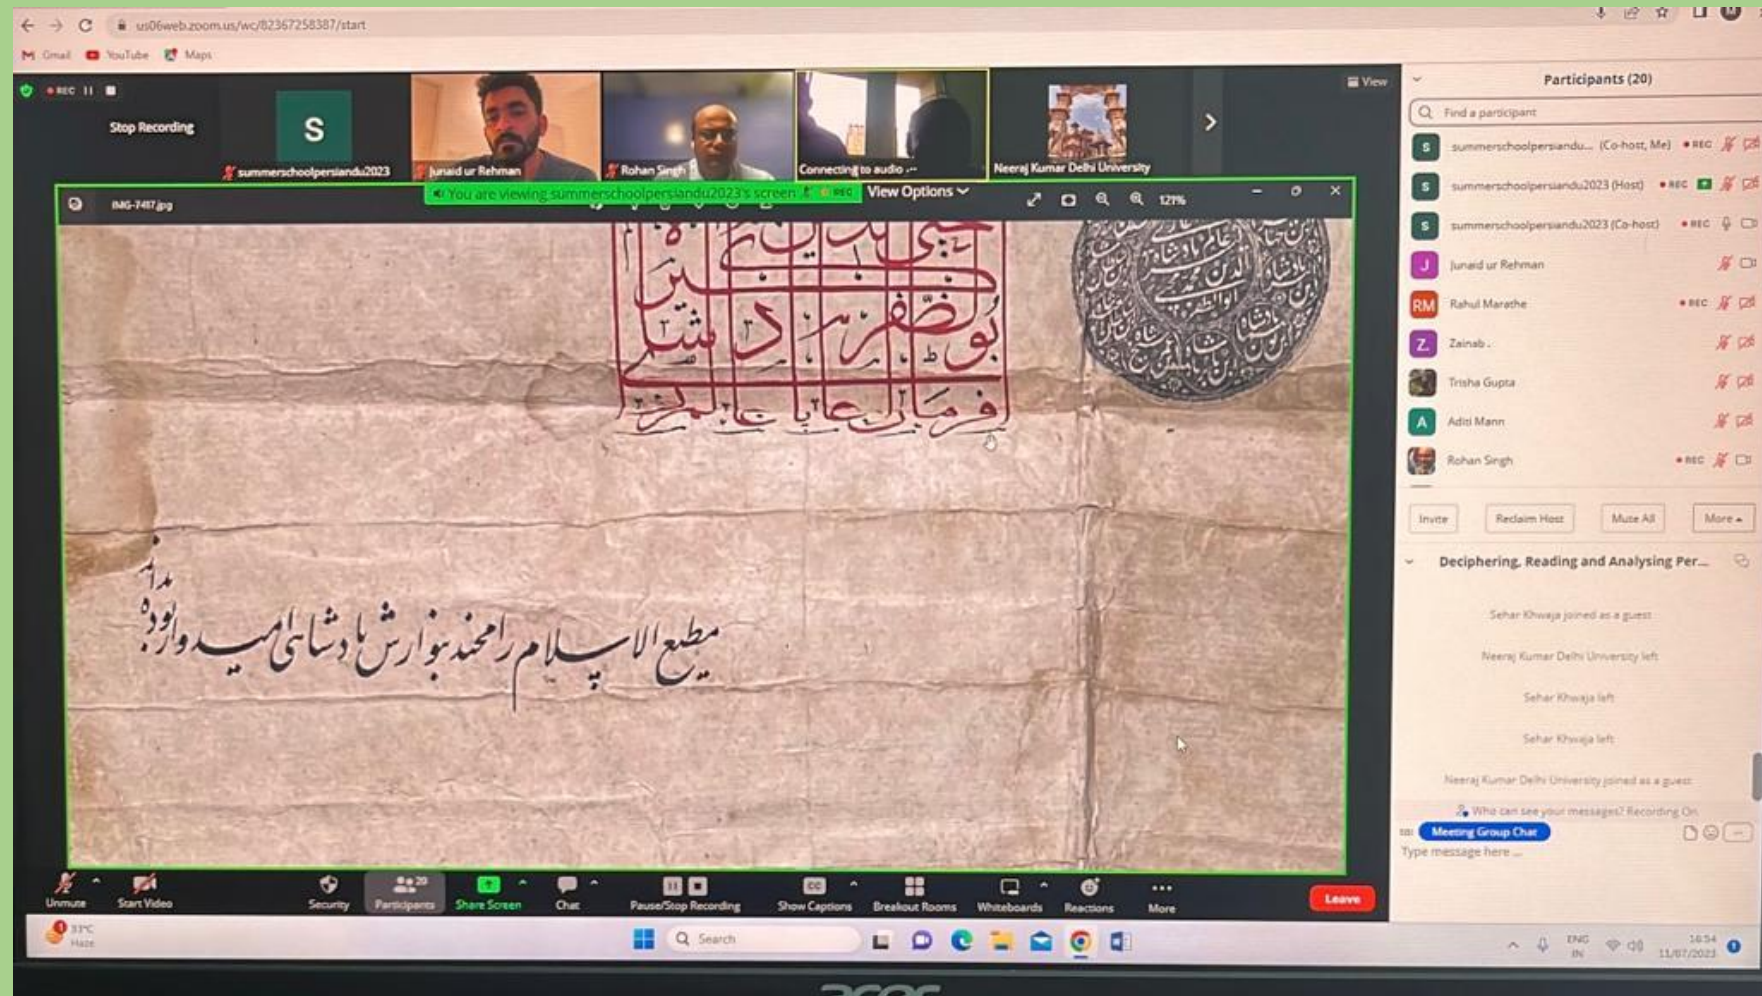 us06web.zoom.us/wc/82367258387/start
Gmail YouTube Maps
REC
Stop Recording
S
summerschoolpersiandu2023
Junaid ur Rehman
Rohan Singh
Connecting to audio ...
Neeraj Kumar Delhi University
View
You are viewing summerschoolpersiandu2023's screen REC
View Options
IMG-7417.jpg
121%
مطیع الاسلام رامچند بنوازش بادشاهی امیدوار بوده
بداند
Participants (20)
Find a participant
S summerschoolpersiandu... (Co-host, Me) REC
S summerschoolpersiandu2023 (Host) REC
S summerschoolpersiandu2023 (Co-host) REC
J Junaid ur Rehman
RM Rahul Marathe REC
Z. Zainab .
Trisha Gupta
A Aditi Mann
Rohan Singh REC
Invite Reclaim Host Mute All More
Deciphering, Reading and Analysing Per...
Sehar Khwaja joined as a guest
Neeraj Kumar Delhi University left
Sehar Khwaja left
Sehar Khwaja left
Neeraj Kumar Delhi University joined as a guest
Who can see your messages? Recording On
Meeting Group Chat
Type message here ...
Unmute Start Video Security Participants 20 Share Screen Chat Pause/Stop Recording CC Show Captions Breakout Rooms Whiteboards Reactions More Leave
1 33°C
Haze
Search
ENG
IN
16:54
11/07/2023
acer